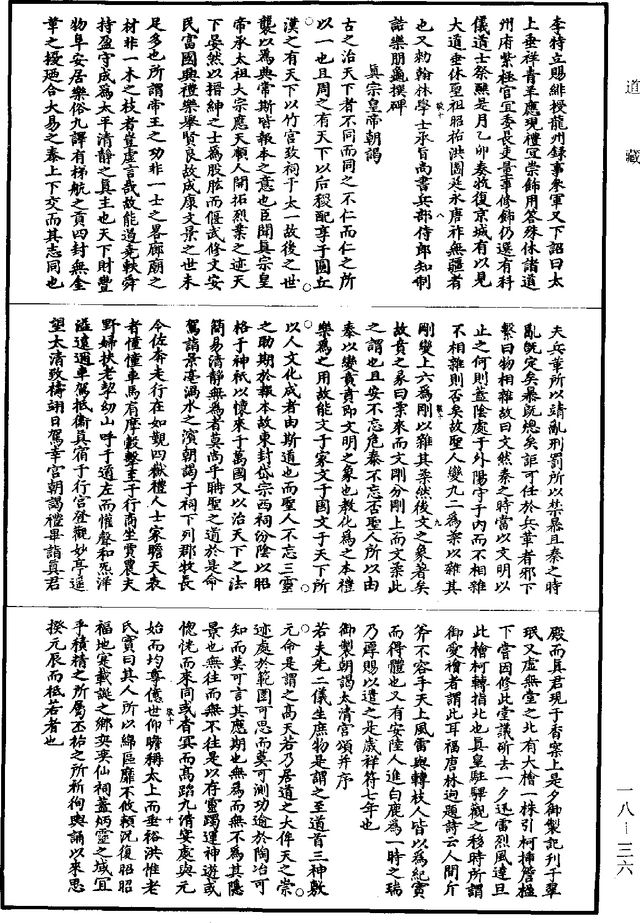 道藏
李特立賜緋授龍州錄事參軍又下詔曰太
上垂祥青羊應現禮宜崇飾用答殊休諸道
州府紫極宮宜委長吏量事修飾仍選有科
儀道士祭醮是月乙卯奏牧復京城有以見
大道垂休聖祖昭祐洪圖延永唐祚無疆者
也又勑翰林學士承旨尚書兵部侍郎知制
誥樂朋龜撰碑
眞宗皇帝朝謁
古之治天下者不同而同之不仁而仁之所
以一也且周之有天下以后稷配享于圜丘
漢之有天下以竹宮致祠于太一故後之世
襲以為典常斯皆報本之意也臣聞眞宗皇
帝承太祖大宗應天順人開拓烈業之迹天
下晏然以搢紳之士為股肱而偃武修文安
民富國興禮樂舉賢良故成康文景之世未
足多也所謂帝王之功非一士之畧廊廟之
材非一木之枝者豈虛言哉故能過堯軼舜
持盈守成為太平清靜之眞主也天下財豐
物阜安居樂俗九譯有梯航之貢四封無金
革之擾迺合大易之泰上下交而其志同也
夫兵革所以靖亂刑罰所以禁暴且泰之時
亂旣定矣暴旣熄矣詎可任於兵革者邪下
繫曰物相雜故曰文然泰之時當以文明以
止之何則蓋陰處于外陽守于內而不相雜
不相雜則否矣故聖人變九二為柔以雜其
剛變上六為剛以雜其柔然後文之象著矣
故賁之彖曰柔來而文剛分剛上而文柔此
之謂也且安不忘危泰不忘否聖人所以由
泰以變賁賁即文明之象也教化為之本禮
樂為之用故能文于家文于國文于天下所
以人文化成者由斯道也而聖人不忘三靈
之助期於報本故東封岱宗西祠汾陰以昭
格于神祇以懷來于萬國又以治天下之法
簡易清靜無為者莫尚乎聃聖之道於是命
駕詣景亳渦水之濱朝謁于祠下列郡牧長
令佐奔走行在如觀四嶽禮人士家瞻天表
者憧憧車馬有摩轂擊至于行商坐賈農夫
野婦扶老挈幼山呼于道左而懽聲和炁洋
溢遠邇車駕抵衛眞宿于行宮登觀妙亭遥
望太清致禱翊日駕幸宮朝謁禮畢詣眞君
殿而眞君現于香案上是夕御製記刋于翠
珉又虛無堂之北有大檜一株引柯挿簷楹
下嘗因修此堂議斫去一夕迅雷烈風達旦
此檜柯轉指北也眞皇駐驆觀之移時所謂
御愛檜者謂此耳福唐林迥題詩云人間斤
斧不容手天上風雷與轉枝人皆以為紀實
而得體也又有安陸人進白鹿為一時之瑞
乃厚賜以遣之是歲祥符七年也
御製朝謁太清宮頌并序
若夫先二儀生庶物是謂之至道首三神敷
元命是謂之高天若乃居道之大侔天之崇
迹處於範圍可思而莫可測功逾於陶冶可
知而莫可言其應期也無為而無不為其隱
景也無往而無不往是以存靈躅運神遊或
惚恍而來同或杳冥而高蹈九清宴處與元
始而均尊億世仰瞻稱太上而垂裕洪惟老
氏實曰其人所以綿區靡不攸賴況復昭昭
福地寔載誕之鄉奕奕仙祠蓋炳靈之域宜
乎積精之所屬丕祐之所祈徇輿誦以來思
揆元辰而祗若者也
一八—三六